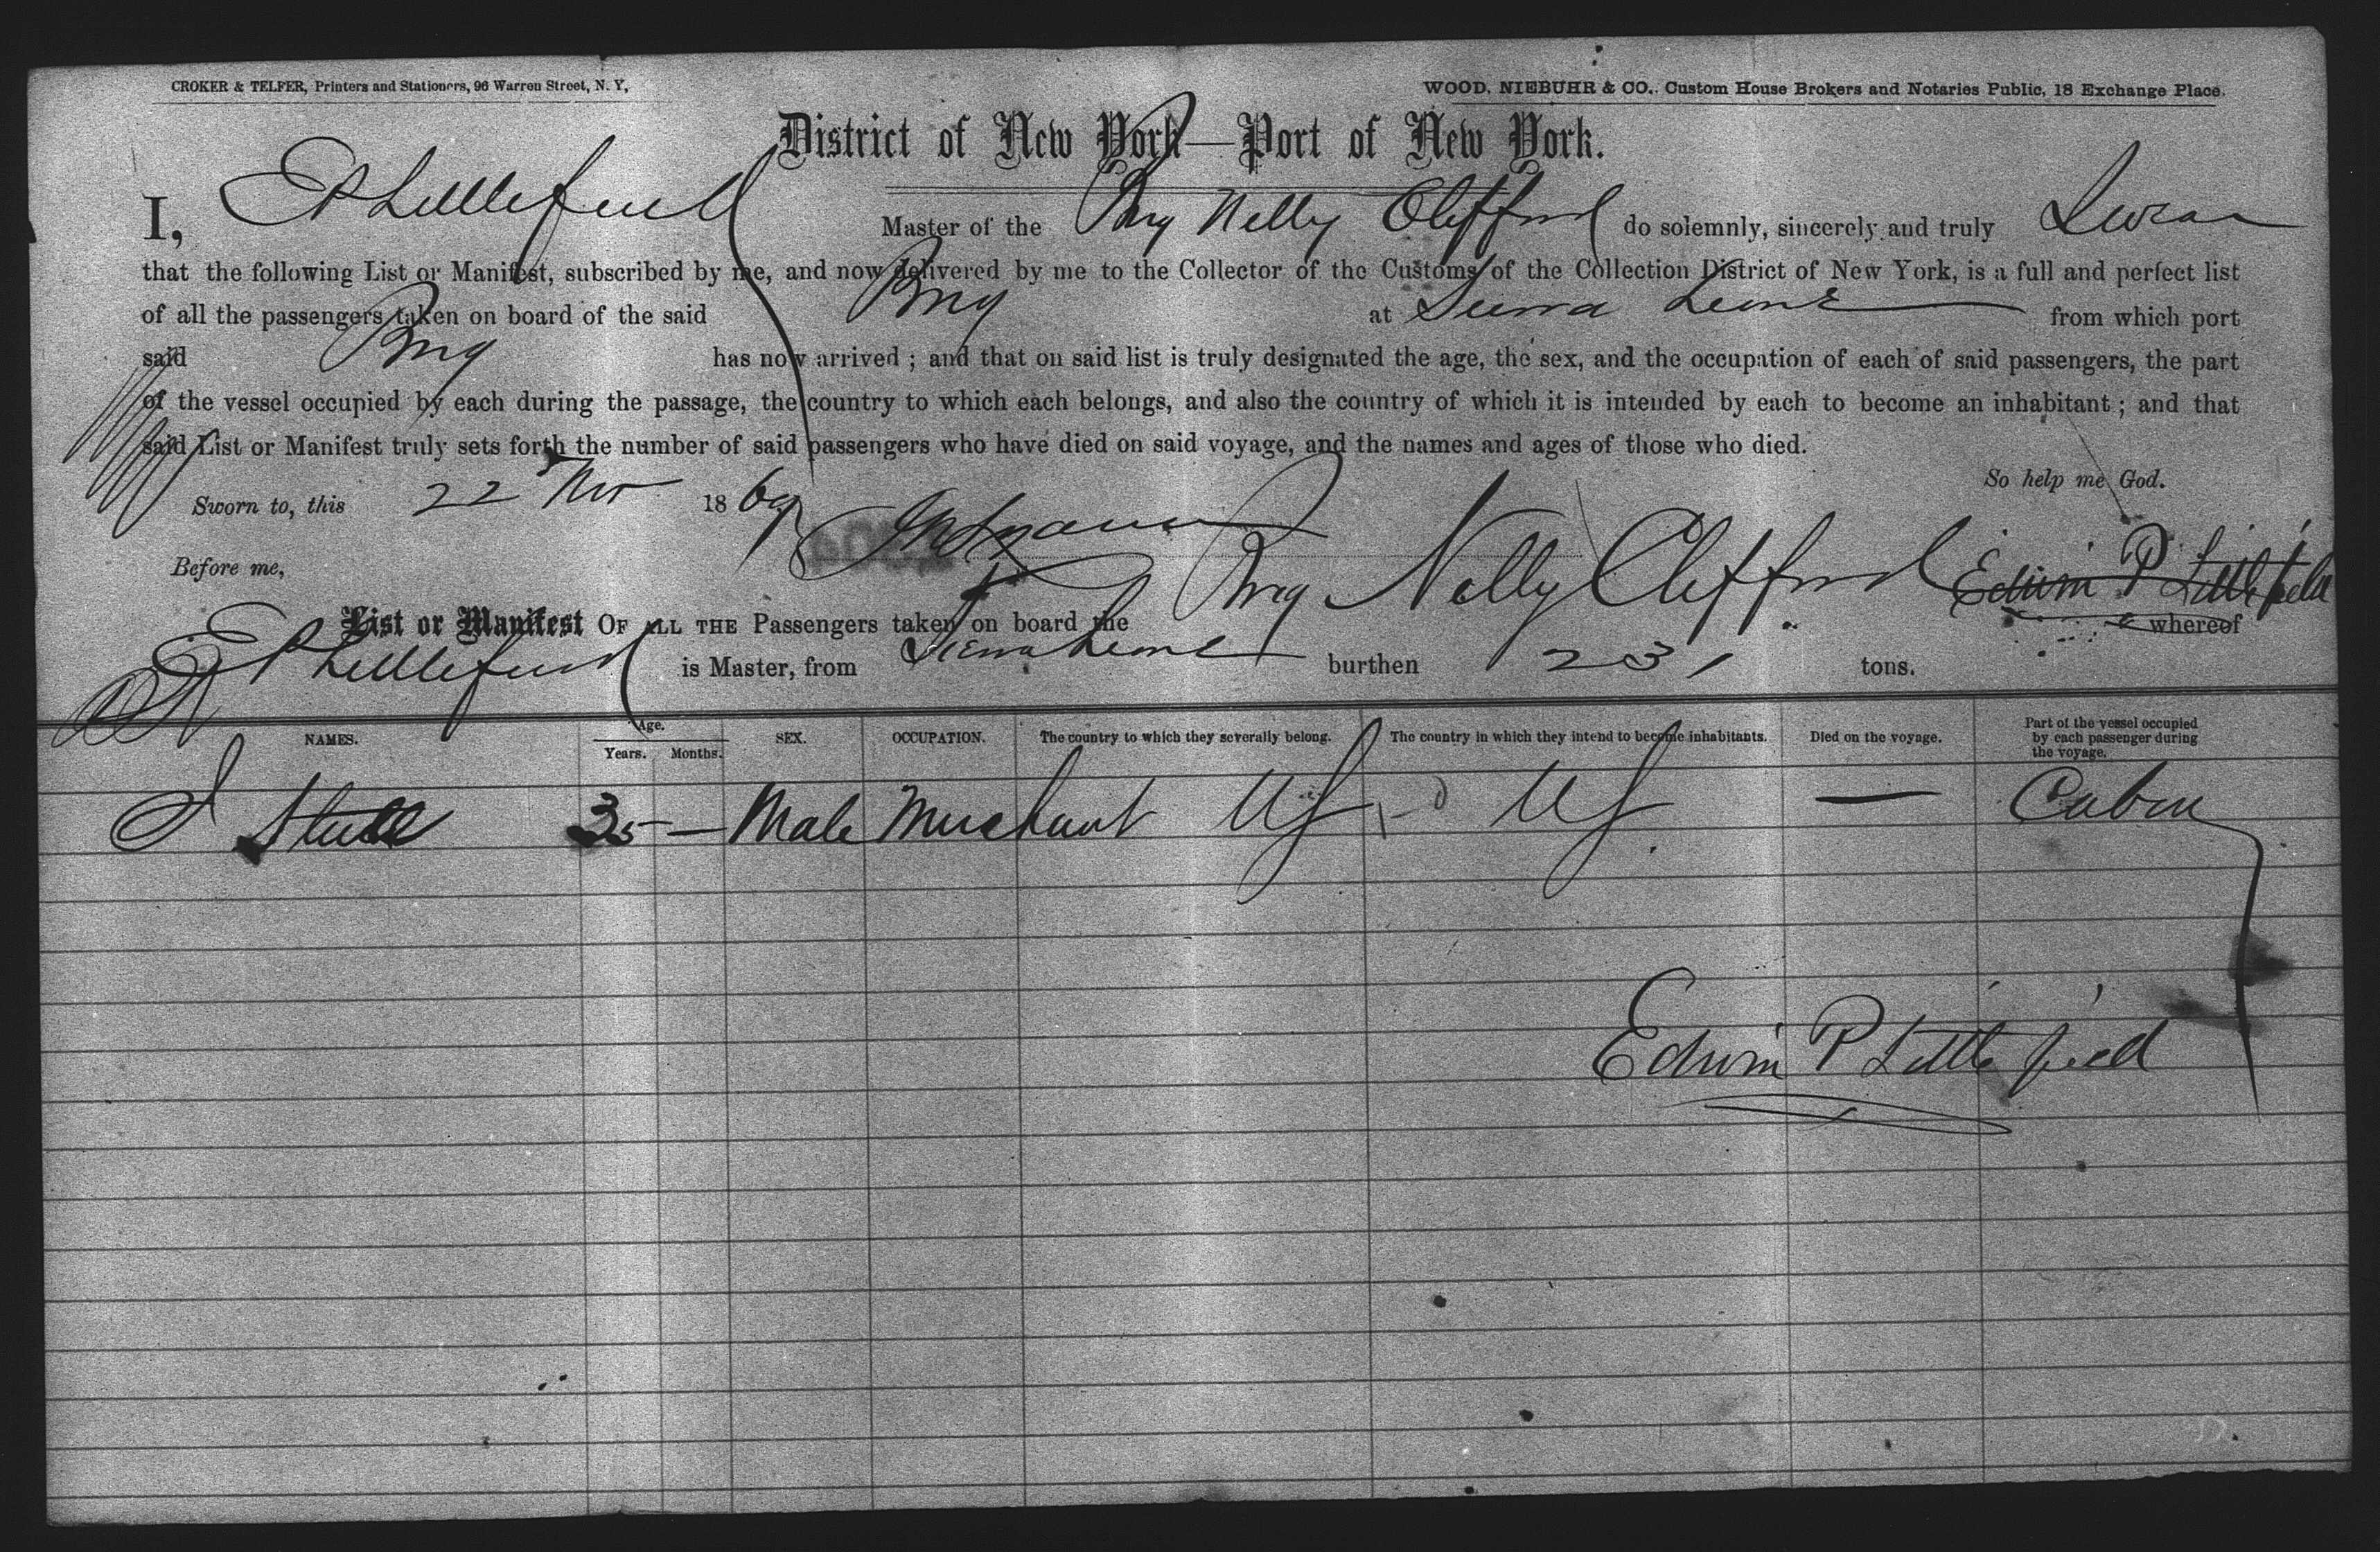 CROKER & TELFER, Printers and Stationers, 96 Warren Street, N. Y,
WOOD, NIEBUHR & CO.. Custom House Brokers and Notaries Public, 18 Exchange Place.
District of New York—Port of New York.
I, E P Littlefield Master of the Brig Nelly Clifford do solemnly, sincerely and truly Swear
that the following List or Manifest, subscribed by me, and now delivered by me to the Collector of the Customs of the Collection District of New York, is a full and perfect list
of all the passengers taken on board of the said Brig at Sierra Leone from which port
said Brig has now arrived ; and that on said list is truly designated the age, the sex, and the occupation of each of said passengers, the part
of the vessel occupied by each during the passage, the country to which each belongs, and also the country of which it is intended by each to become an inhabitant ; and that
said List or Manifest truly sets forth the number of said passengers who have died on said voyage, and the names and ages of those who died.
So help me God.
Sworn to, this 22 Nov 1869
Before me,
Edwin P Littlefield
List or Manifest OF ALL THE Passengers taken on board the Brig Nelly Clifford whereof
E P Littlefield is Master, from Sierra Leone burthen 231 tons.
NAMES. Age. Years. Months. SEX. OCCUPATION. The country to which they severally belong. The country in which they intend to become inhabitants. Died on the voyage. Part of the vessel occupied by each passenger during the voyage.
35 — Male Merchant US US — Cabin
Edwin P Littlefield